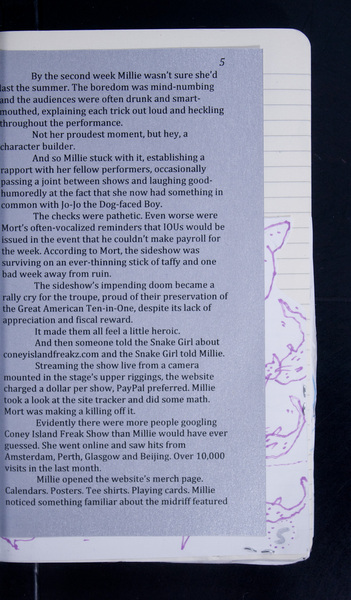 5
By the second week Millie wasn't sure she'd
last the summer. The boredom was mind-numbing
and the audiences were often drunk and smart-
mouthed, explaining each trick out loud and heckling
throughout the performance.
Not her proudest moment, but hey, a
character builder.
And so Millie stuck with it, establishing a
rapport with her fellow performers, occasionally
passing a joint between shows and laughing good-
humoredly at the fact that she now had something in
common with Jo-Jo the Dog-faced Boy.
The checks were pathetic. Even worse were
Mort's often-vocalized reminders that IOUs would be
issued in the event that he couldn't make payroll for
the week. According to Mort, the sideshow was
surviving on an ever-thinning stick of taffy and one
bad week away from ruin.
The sideshow's impending doom became a
rally cry for the troupe, proud of their preservation of
the Great American Ten-in-One, despite its lack of
appreciation and fiscal reward.
It made them all feel a little heroic.
And then someone told the Snake Girl about
coneyislandfreakz.com and the Snake Girl told Millie.
Streaming the show live from a camera
mounted in the stage's upper riggings, the website
charged a dollar per show, PayPal preferred. Millie
took a look at the site tracker and did some math.
Mort was making a killing off it.
Evidently there were more people googling
Coney Island Freak Show than Millie would have ever
guessed. She went online and saw hits from
Amsterdam, Perth, Glasgow and Beijing. Over 10,000
visits in the last month.
Millie opened the website's merch page.
Calendars. Posters. Tee shirts. Playing cards. Millie
noticed something familiar about the midriff featured